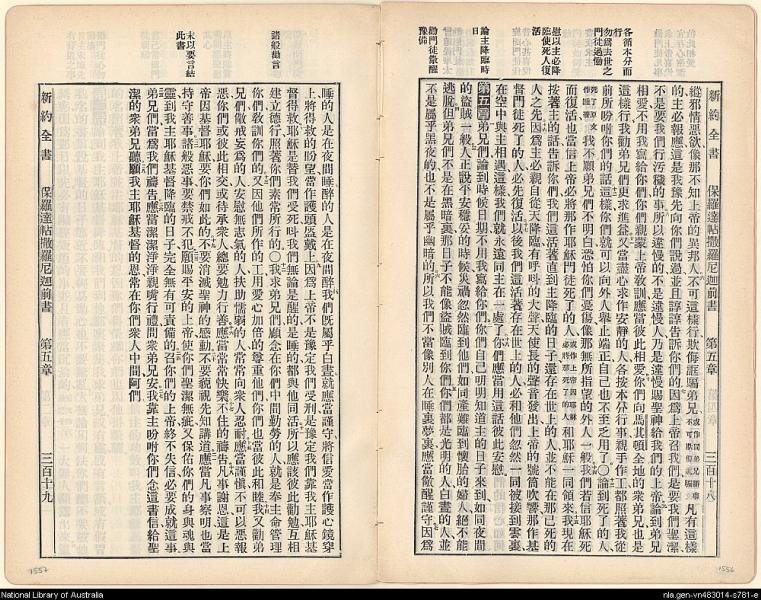 新約全書 保羅達帖撒羅尼迦前書 第五章 三百十八
縱邪情惡欲像那不知上帝的異邦人不可這樣行欺侮誆騙弟兄
凡有這樣
的主必報應這是我豫先向你們說過並且諄諄告訴你們的因爲上帝召我們是要我們聖潔
不是要我們行污穢的事所以違慢的不是違慢人乃是違慢賜聖神給我們的上帝論到弟兄
相愛不用我寫給你們你們親蒙上帝教訓應當彼此相愛你們向馬其頓全地的衆弟兄也是
這樣行我勸弟兄們更求進益又當盡心求作安靜的人各按本分行事親手作工都照著我從
前所吩咐你們的話這樣你們就可以向外人舉止端正自己也不至乏用了〇論到死了的人
我不願弟兄們不明白恐怕你們憂傷像那無所指望的外人一般我們若信耶穌死
而復活也當信上帝必將那作耶穌門徒死了的人
和耶穌一同領來我現在
按著主的話告訴你們我們這活著直到主降臨的日子還存在世上的人並不能在那已死的
人之先因爲主必親自從天降臨有呼叫的大聲天使長的聲音發出上帝的號筒吹響那作基
督門徒死了的人必先復活以後我們這活著存在世上的人必和他們忽然一同被接到雲裏
在空中與主相遇這樣我們就永遠同主在一處了你們應當用這話彼此安慰
第五章 弟兄們論到時候日期不用我寫給你們你們自己明明知道主的日子來到如同夜間
的盜賊一般人正說平安穩妥的時候災禍忽然臨到他們如同產難臨到懷胎的婦人絕不能
逃脫但弟兄們不是在黑暗裏那日子不能像盜賊臨到你們你們都是光明的人白晝的人並
不是屬乎黑夜的也不是屬乎幽暗的所以我們不當像別人在睡裏夢裏應當儆醒謹守因爲
各循本分而行
勿爲去世之門徒過慟
慰以主必降臨使死人復活
論主降臨時日
勸門徒儆醒豫備
1556
睡的人是在夜間睡醉的人是在夜間醉我們既屬乎白晝就應當謹守將信愛當作護心鏡穿
上將得救的盼望當作護頭盔戴上因爲上帝不是豫定我們受刑是豫定我們靠我主耶穌基
督得救耶穌是替我們受死呌我們無論是醒的是睡的都與他同活所以應該彼此勸勉互相
建立德行照著你們素常所行的〇我求弟兄們顧念在你們中間勤勞的人就是奉主命管理
你們敎訓你們的又因他們所作的工用愛心加倍的尊重他們你們也當彼此和睦我又勸弟
兄們儆戒妄爲的人安慰無志氣的人扶助懦弱的人常常向衆人忍耐應當謹愼不可以惡報
惡你們或彼此相交或待承衆人總要勉力行善應當常常快樂不住的禱告凡事謝恩這是上
帝因基督耶穌要你們如此的不要消滅聖神的感動不要藐視先知講道應當凡事察明也當
持守善事諸般惡事要禁戒不犯願賜平安的上帝使你們聖潔無疵又保佑你們的身與魂與
靈到我主耶穌基督降臨的日子完全無有可責備的召你們的上帝終不失信必要成就這事
弟兄們當爲我們禱告應當潔潔淨淨親嘴行禮問衆弟兄安我靠主吩咐你們念這書信給聖
潔的衆弟兄聽願我主耶穌基督的恩常在你們衆人中間阿們
新約全書 保羅達帖撒羅尼迦前書 第五章 三百十九
諸般勸言
末以要言結此書
1557
National Library of Australia
nla.gen-vn483014-s781-e